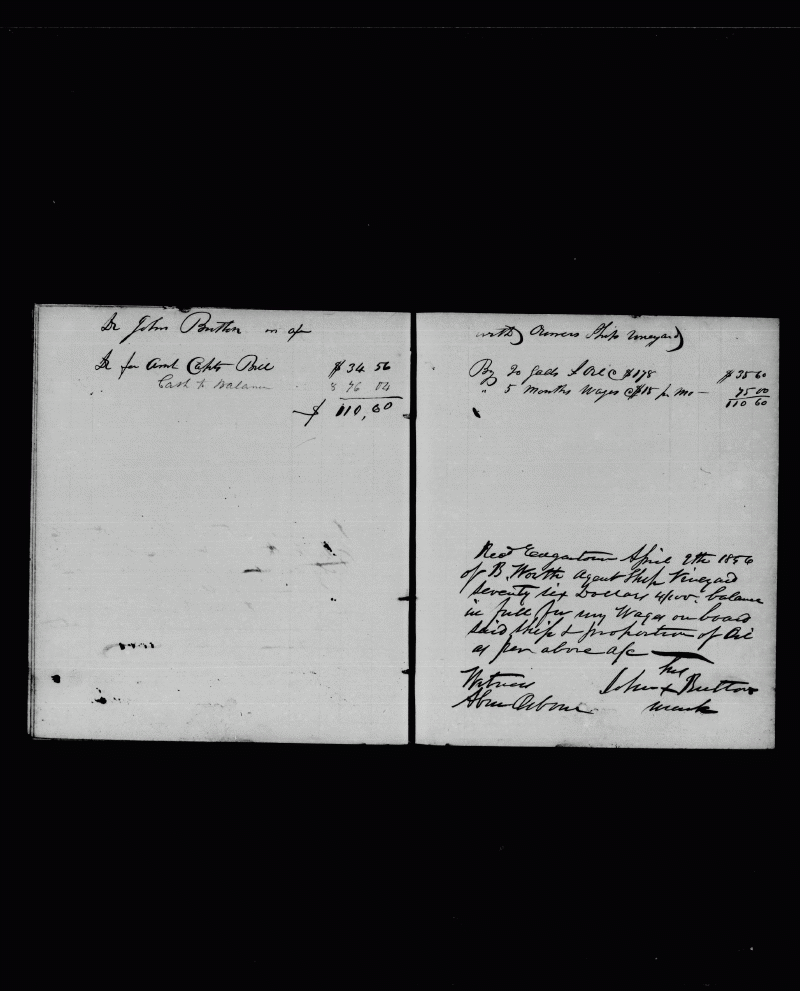 Dr John Button in a/c
Dr for Amt Capts Bill $34 56
Cash to Balance $ 76 04
$ 110,60
with Owners Ship Vineyard)
By 20 galls S Oil @ $178 $35 60
" 5 Months Wages @ $15 pr Mo — 75 00
110 60
Recd Edgartown April 9th 1856
of B. Worth Agent Ship Vineyard
Seventy six Dollars 4/100. balance
in full for my Wages on board
said ship & proportion of Oil
as per above a/c
his
Witness John x Button
Abm Osborn mark